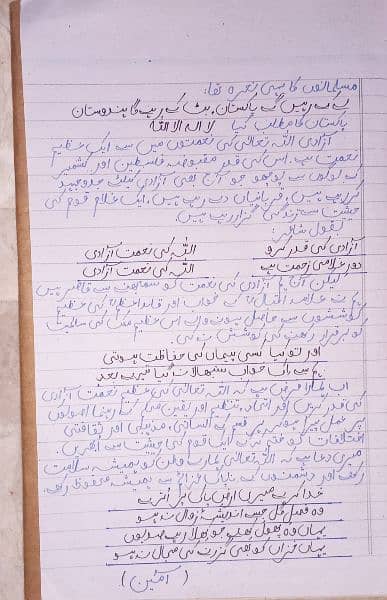 مسلمانوں کا یہی نعرہ تھا:
لے کے رہیں گے پاکستان، بٹ کے رہے گا ہندوستان
پاکستان کا مطلب کیا لا الہ الا اللہ
آزادی اللہ تعالیٰ کی نعمتوں میں سے ایک عظیم
نعمت ہے۔ اس کی قدر مقبوضہ فلسطین اور کشمیر
کے لوگوں سے پوچھو جو آج بھی آزادی کیلئے جدوجہد
کر رہے ہیں، قربانیاں دے رہے ہیں، ایک غلام قوم کی
حیثیت سے زندگی گزار رہے ہیں۔
بقول شاعر:
آزادی کی قدر کرو اللہ کی نعمت آزادی
دور غلامی زحمت ہے اللہ کی نعمت آزادی
لیکن آج ہم آزادی کی نعمت کو سمجھنے سے قاصر ہیں
ہم نے علامہ اقبال کے خواب اور قائداعظم کی عظیم
کوششوں سے حاصل ہونے والے اس عظیم ملک کی سالمیت
کو برقرار رکھنے کی کوشش نہ کی۔
اور تو نے کسی پیماں کی حفاظت نہ ہوئی
ہم سے اک خواب سنبھالا نہ گیا تیرے بعد
اب ہمارا فرض ہے کہ اللہ تعالیٰ کی عظیم نعمت آزادی
کی قدر کریں اور اتحاد، تنظیم اور یقین محکم کے رہنما اصولوں
پر عمل پیرا ہو کر ہر قسم کے لسانی، مذہبی اور ثقافتی
اختلافات کو ختم کر کے ایک قوم کی حیثیت سے ابھریں۔
میری دعا ہے کہ اللہ تعالیٰ ہمارے وطن کو ہمیشہ سلامت
رکھے اور دشمنوں کے ناپاک عزائم سے ہمیشہ محفوظ رکھے۔
خدا کرے میری ارض پاک پر اترے
وہ فصل گل جسے اندیشہ زوال نہ ہو
یہاں جو پھول کھلے وہ کھلا رہے صدیوں
یہاں خزاں کو بھی گزرنے کی مجال نہ ہو
(آمین)